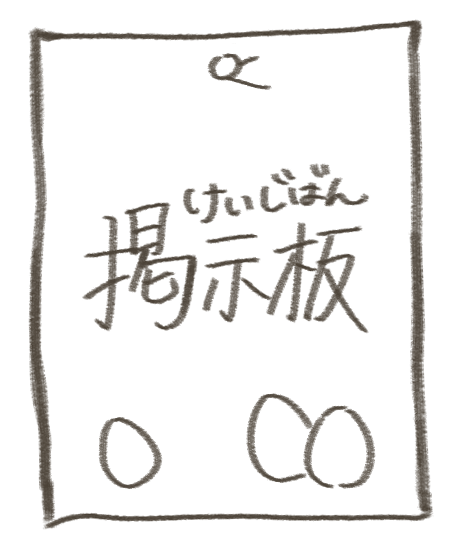 けいじばん
掲示板